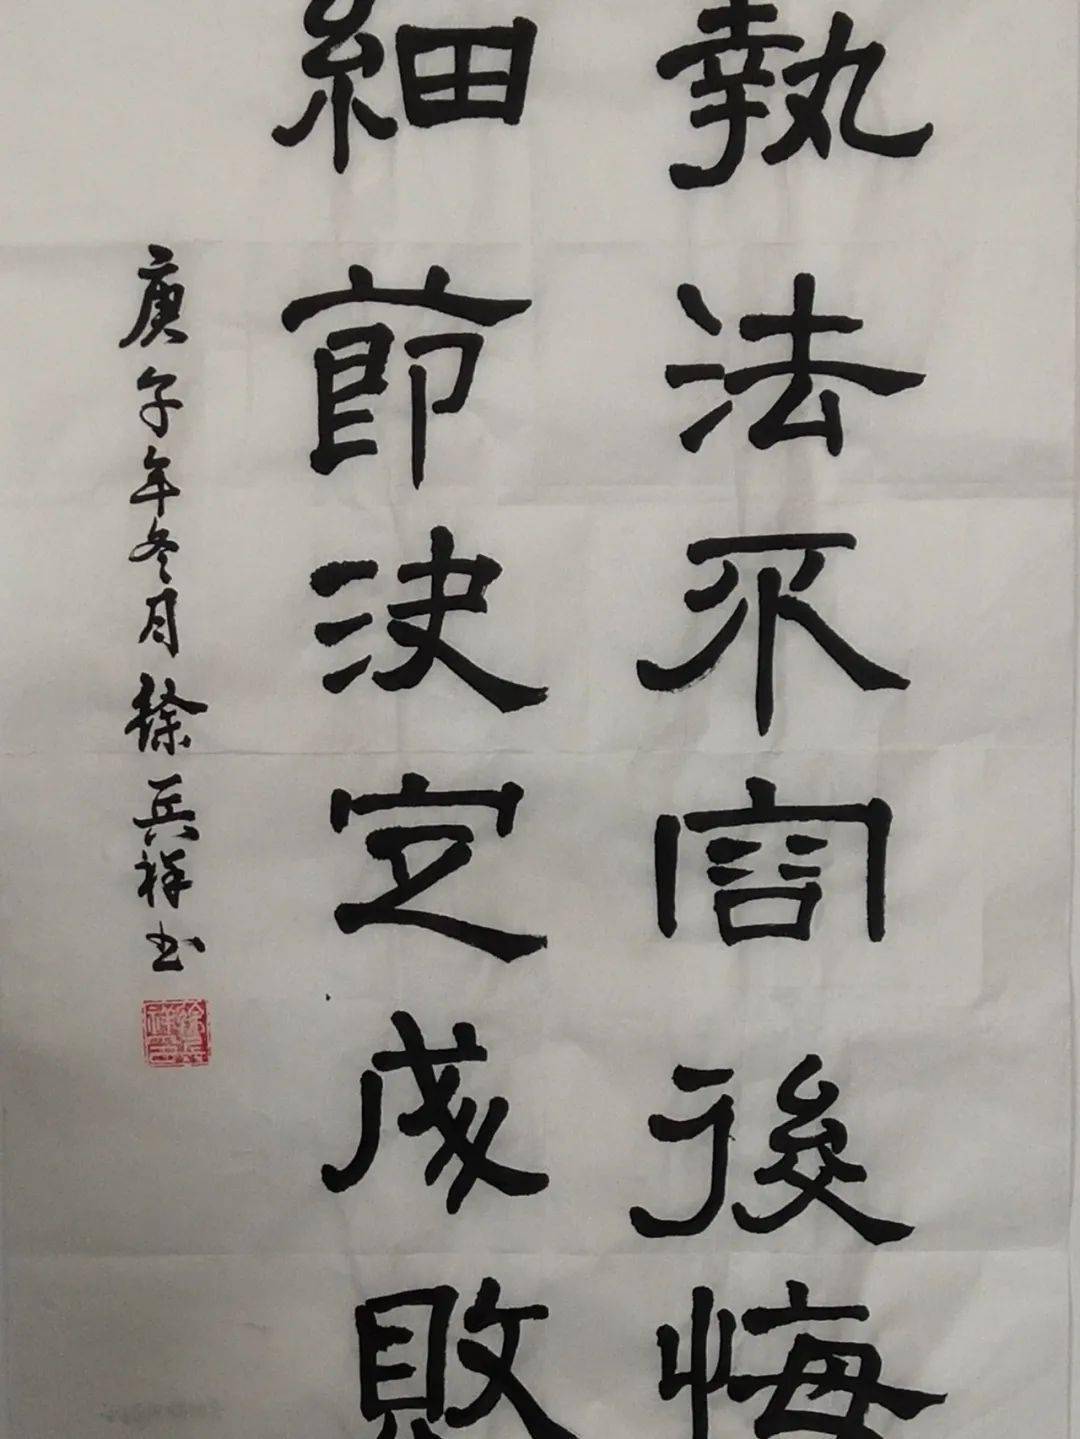 執法不容後悔
細節決定成敗
庚子年冬月徐兵祥书